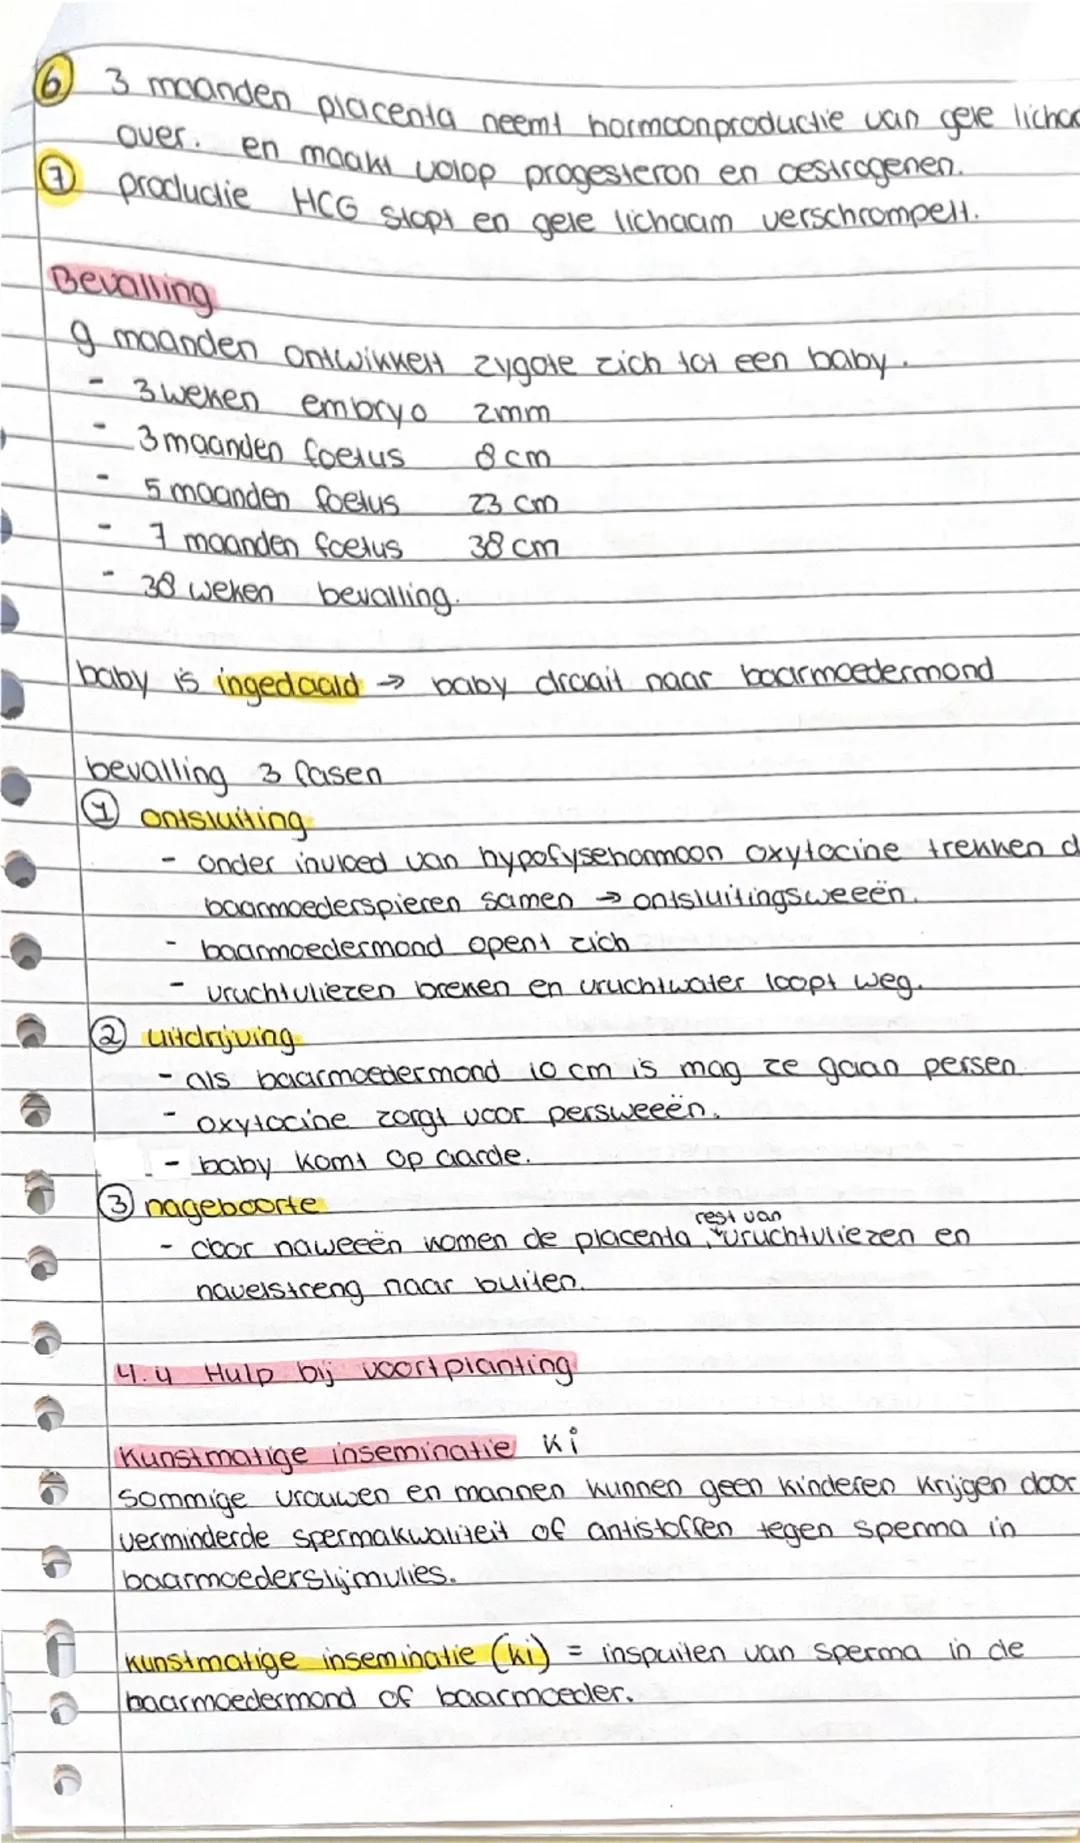 6 3 maanden placenta neemt hormoonproductie van gele lichaa
over. en maakt volop progesteron en oestrogenen.
7 productie HCG stopt en gele lichaam verschrompelt.
Bevalling
9 maanden ontwikkelt zygote zich tot een baby.
- 3 weken embryo 2mm
- 3 maanden foetus 8 cm
- 5 maanden foetus 23 cm
- 7 maanden foetus 38 cm
- 38 weken bevalling.
baby is ingedaald → baby draait naar baarmoedermond
bevalling 3 fasen
1 ontsluiting
- onder invloed van hypofysehormoon oxytocine trekken d
baarmoederspieren samen → ontsluitingsweeën.
- baarmoedermond opent zich
- vruchtvliezen breken en vruchtwater loopt weg.
2 uitdrijving
- als baarmoedermond 10 cm is mag ze gaan persen.
- oxytocine zorgt voor persweeën.
- baby komt op aarde.
3 nageboorte
- door naweeën komen de placenta, rest van vruchtvliezen en
navelstreng naar buiten.
4.4 Hulp bij voortplanting
Kunstmatige inseminatie ki
Sommige vrouwen en mannen kunnen geen kinderen krijgen door
verminderde spermakwaliteit of antistoffen tegen sperma in
baarmoederslijmvlies.
kunstmatige inseminatie (ki) = inspuiten van sperma in de
baarmoedermond of baarmoeder.